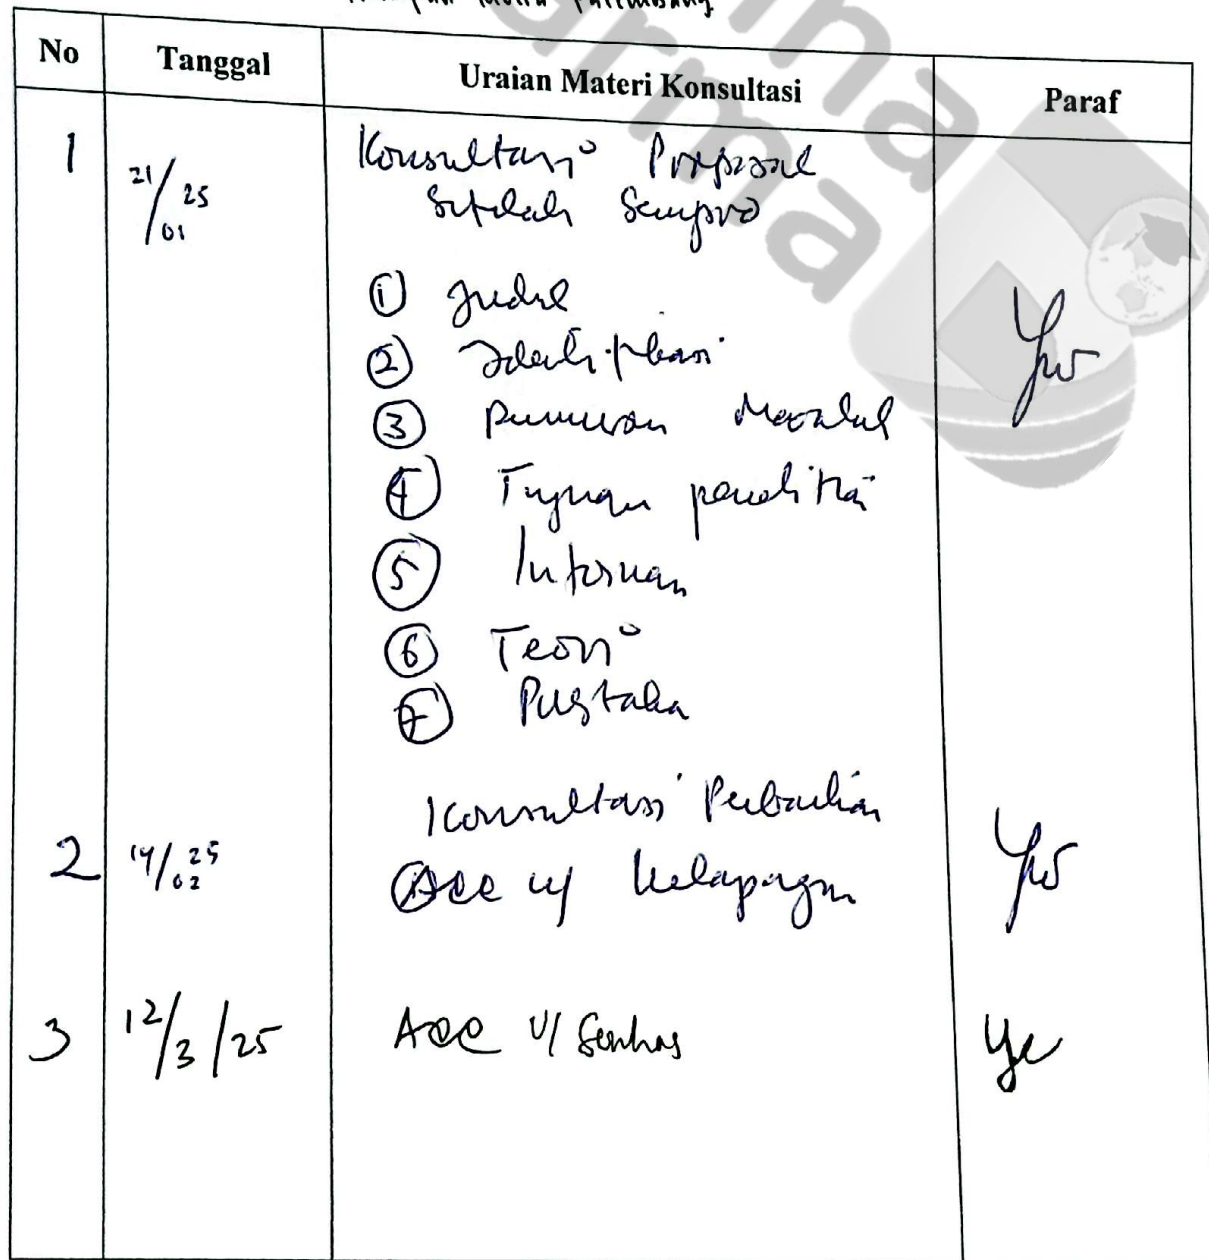 Palembang
No Tanggal Uraian Materi Konsultasi Paraf
1 21/01 25 Konsultasi Proposal
Setelah Sempro
① Judul
② Identifikasi
③ Rumusan Masalah
④ Tujuan penelitian
⑤ Informan
⑥ Teori
⑦ Pustaka
Konsultasi Perbaikan
2 14/02 25 Acc u/ kelapangan
3 12/3/25 Acc u/ Semhas